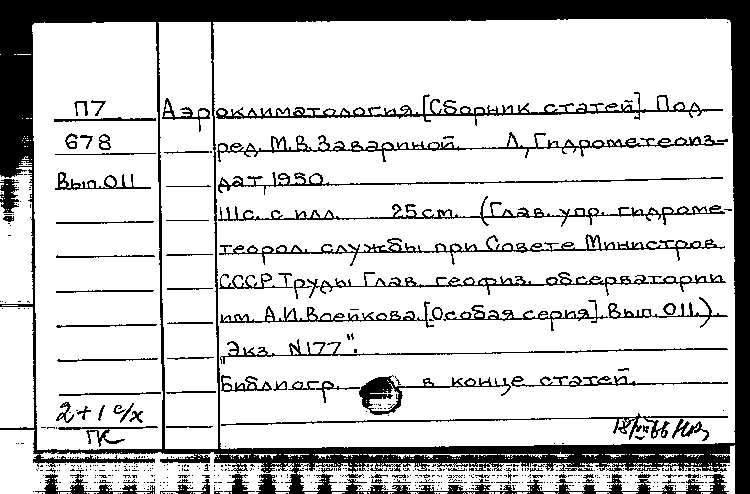 П7 Аэроклиматология. [Сборник статей]. Под
678 ред. М.В. Завариной. Л., Гидрометеоиз-
Вып. 011 дат, 1950.
111с. с илл. 25см. (Глав. упр. гидроме-
теорол. службы при Совете Министров
СССР. Труды Глав. геофиз. обсерватории
им. А.И. Воейкова. [Особая серия]. Вып. 011.).
"Экз. N177".
Библиогр. в конце статей.
2+1 с/х
ГК